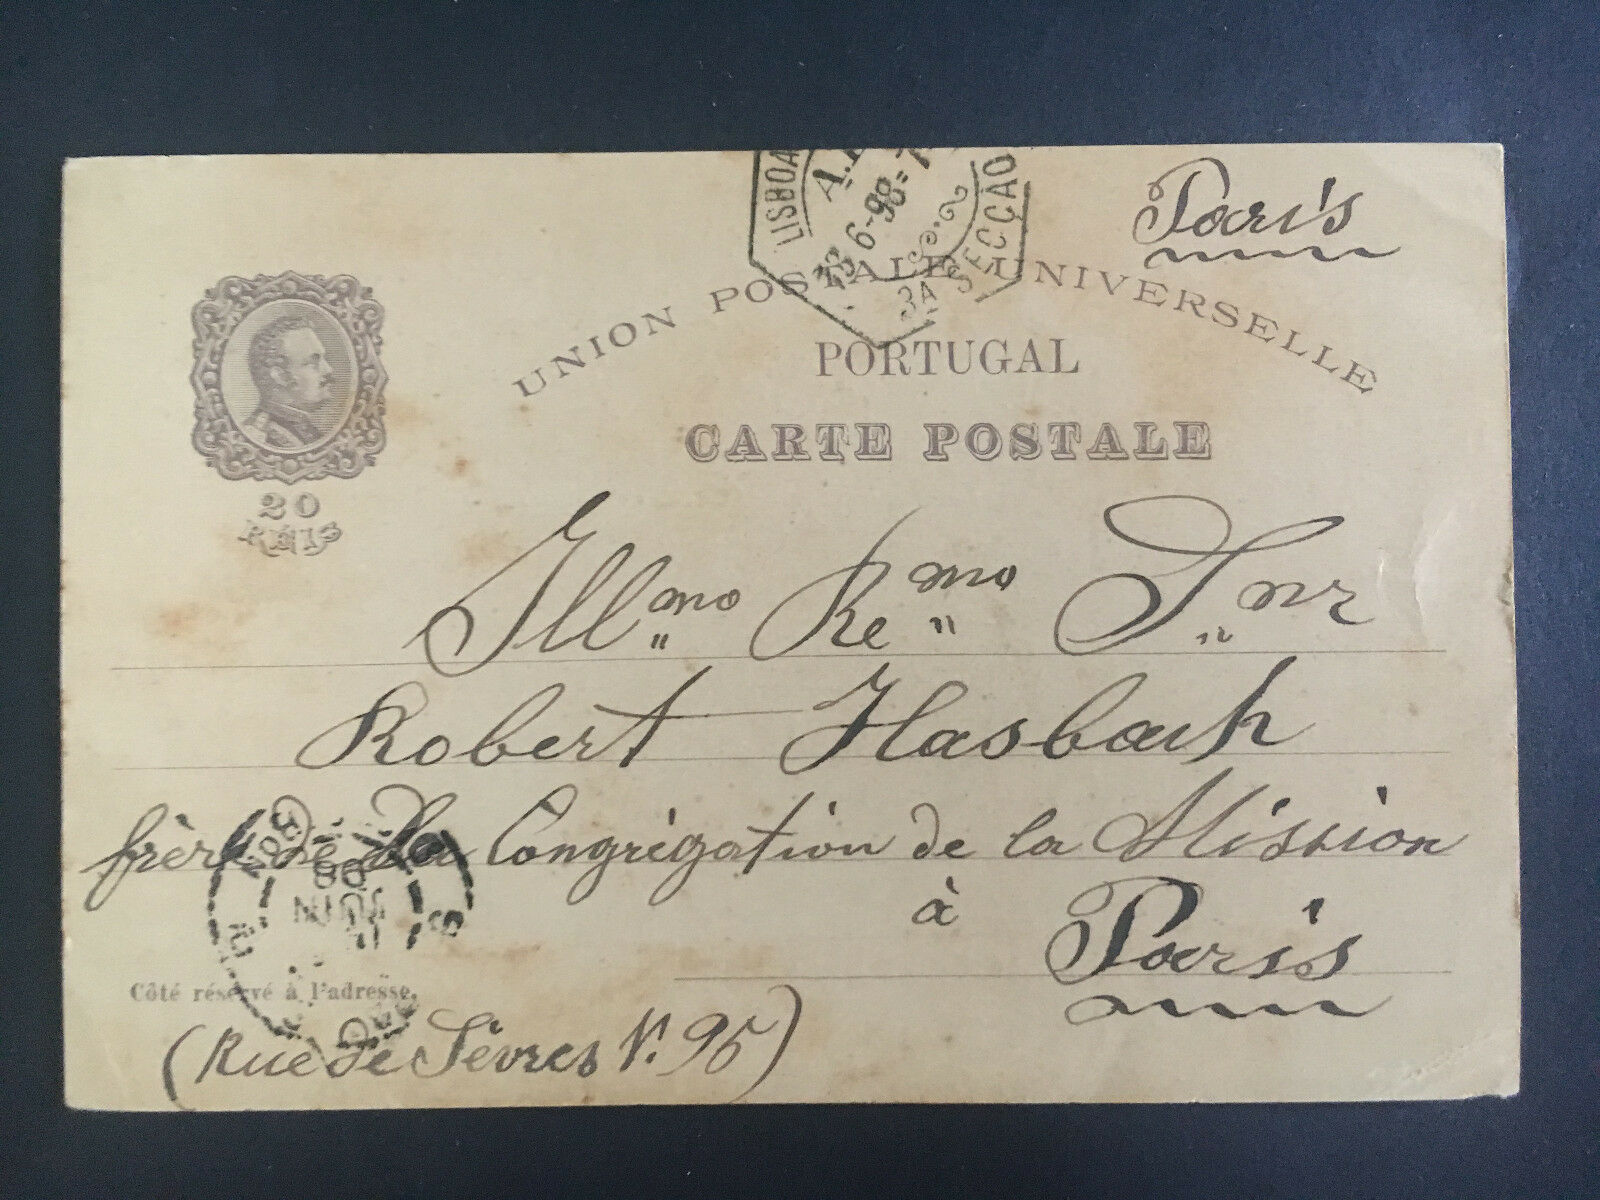 LISBOA
6-98
3A SECÇÃO
Paris
UNION POSTALE UNIVERSELLE
PORTUGAL
CARTE POSTALE
20
RÉIS
Ill.mo Re.mo Snr
Robert Hasbach
frère de la Congrégation de la Mission
à
Paris
Côté réservé à l'adresse.
(Rue de Sèvres N. 95)